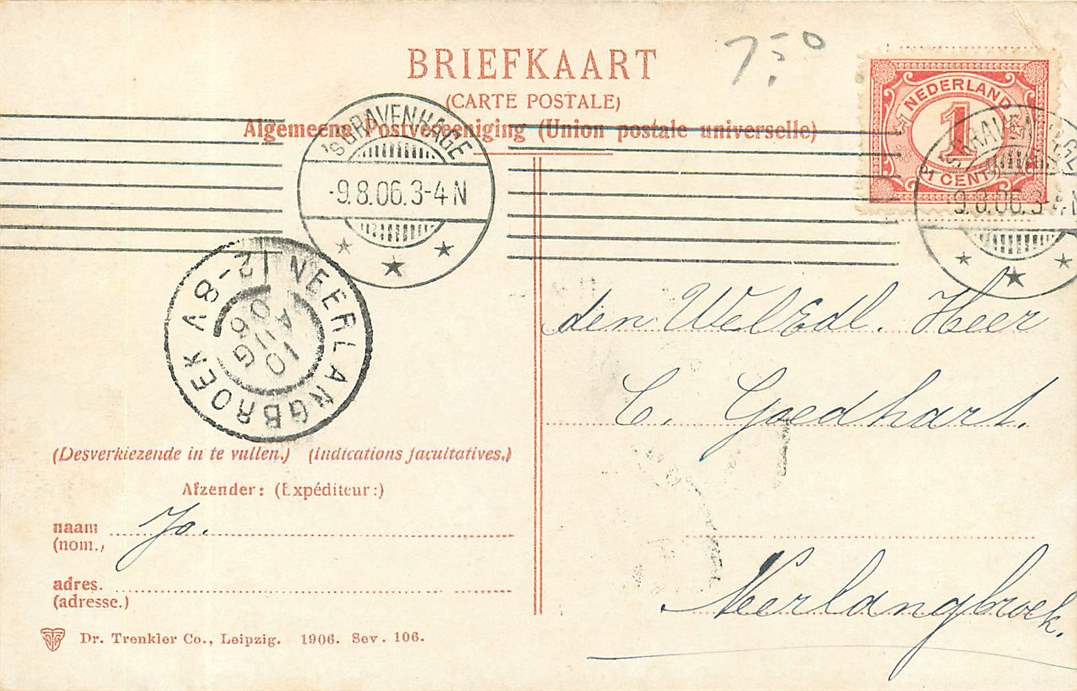 7.50
BRIEFKAART
(CARTE POSTALE)
Algemeene Postvereeniging (Union postale universelle)
NEDERLAND
1
1 CENT
'SGRAVENHAGE
-9.8.06.3-4N
'SGRAVENHAGE
-9.8.06.3-4N
NEERLANGBROEK
A8-12
10
AUG
06
den WelEdl. Heer
C. Goedhart.
Neerlangbroek.
(Desverkiezende in te vullen.) (Indications facultatives.)
Afzender: (Expéditeur:)
naam Jo.
(nom.,
adres.
(adresse.)
Dr. Trenkler Co., Leipzig. 1906. Sev. 106.